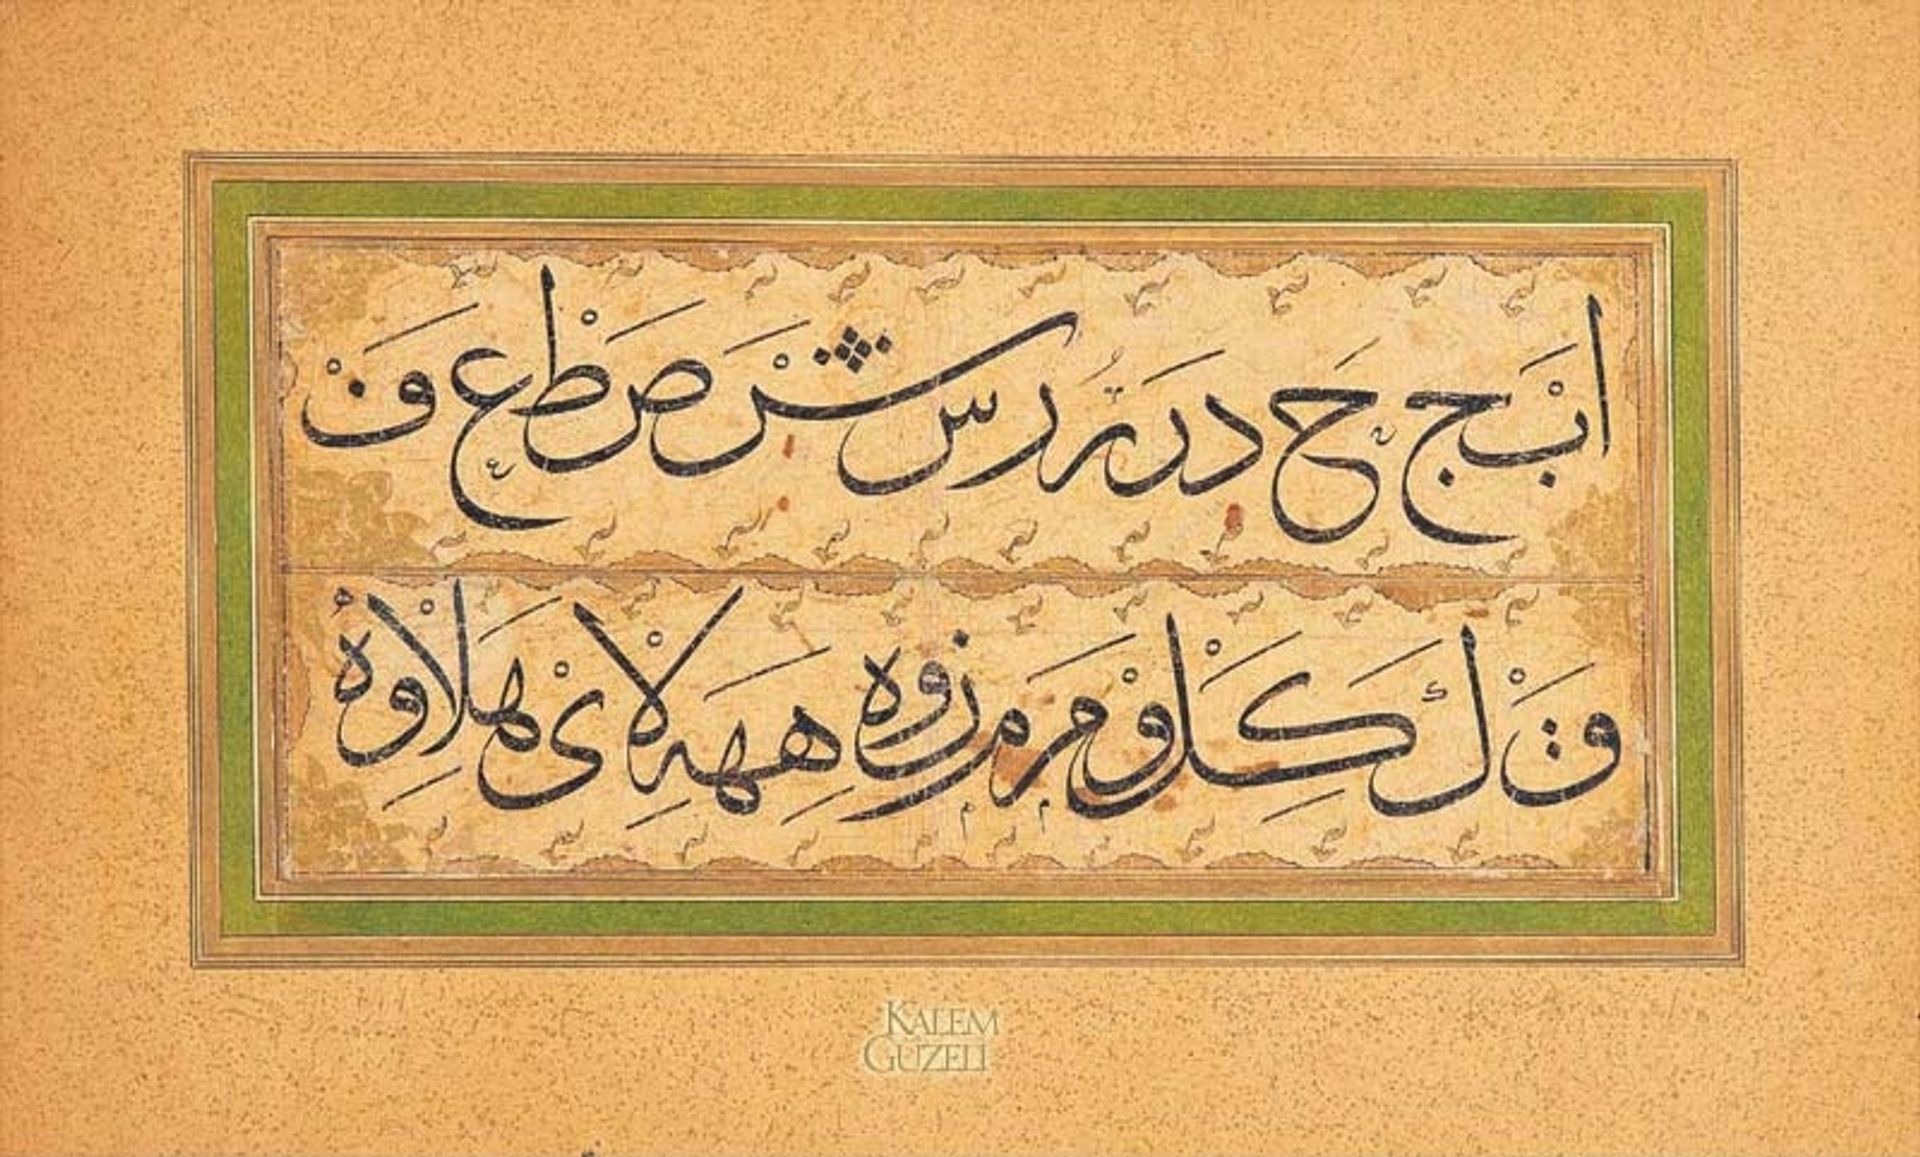 ا ب ج ح د ر ر ر س ش ص ط ع ف
ق ل ك ل و م م م ن و ه ه ه لا ى ه لا و ه
KALEM
GÜZELİ